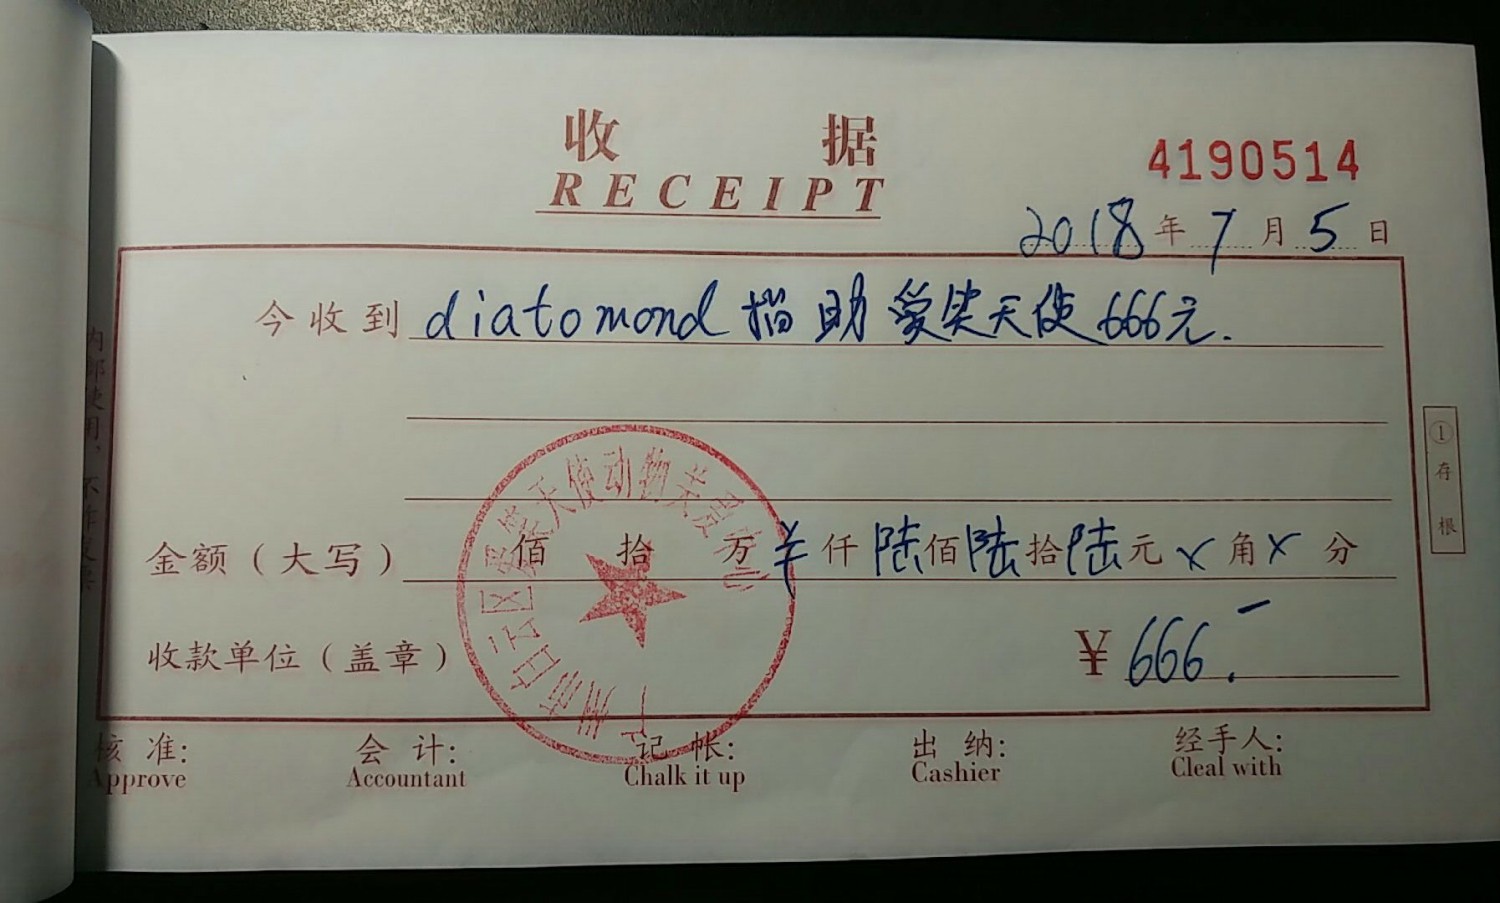 收 据
RECEIPT
4190514
2018年7月5日
今收到 diatomond 捐助爱笑天使666元.
金额(大写) 佰 拾 万 ¥ 仟 陆 佰 陆 拾 陆 元 x 角 x 分
收款单位(盖章)
¥ 666.-
广州市白云区爱笑天使动物关爱中心
① 存根
内部使用,不作发票
核 准: 会 计: 记 帐: 出 纳: 经手人:
Approve Accountant Chalk it up Cashier Cleal with